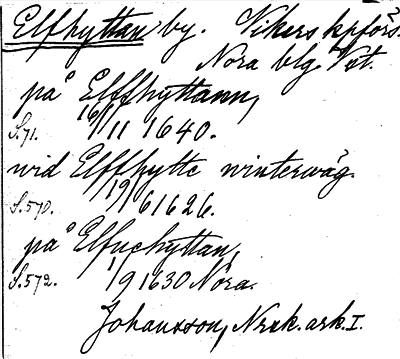 Elfhyttan by. Vikers kpförs.
Nora blg Vst.
på Elffhyttann,
S. 71. 16/11 1640.
wid Elffhytte winterwäg.
S. 570. 19/6 1626.
på Elfuehyttan,
S. 572. 1/9 1630 Nora.
Johansson, Nrak. ark. I.